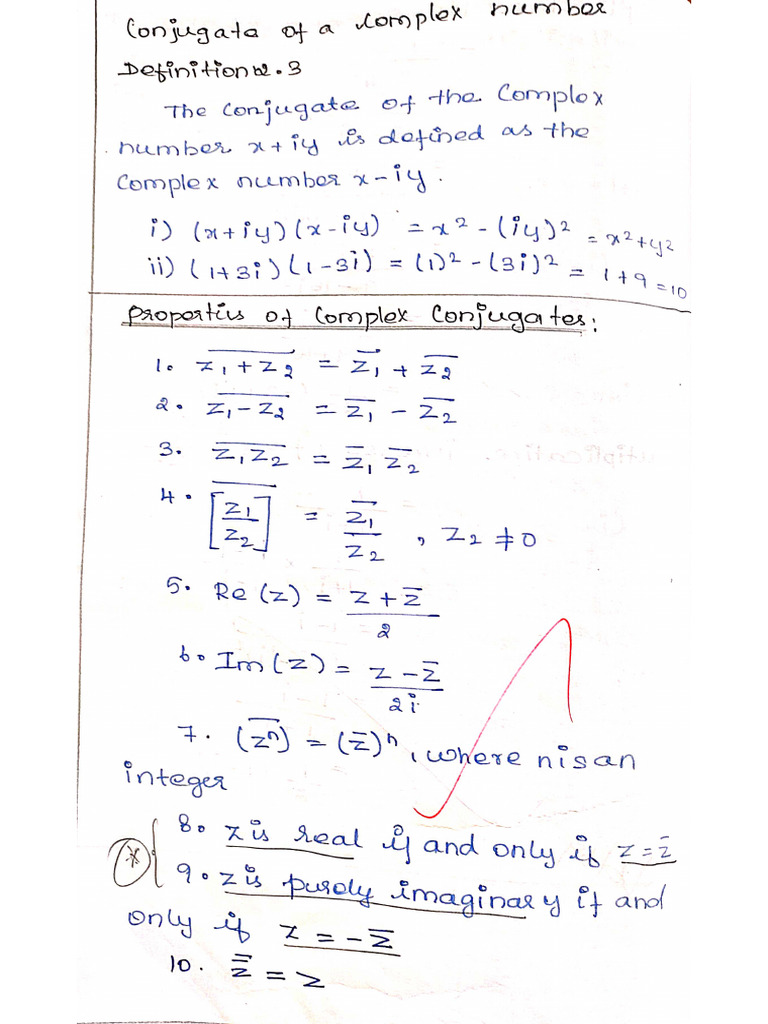 Conjugate of a complex number
Definition 2.3
The conjugate of the complex
number x+iy is defined as the
complex number x-iy.
i) (x+iy)(x-iy) = x² - (iy)² = x²+y²
ii) (1+3i)(1-3i) = (1)² - (3i)² = 1+9 = 10
Properties of complex conjugates:
1. \overline{z₁+z₂} = \overline{z₁} + \overline{z₂}
2. \overline{z₁-z₂} = \overline{z₁} - \overline{z₂}
3. \overline{z₁z₂} = \overline{z₁} \overline{z₂}
4. \overline{[z₁/z₂]} = \overline{z₁}/z₂, z₂ ≠ 0
5. Re(z) = (z+z̄)/2
6. Im(z) = (z-z̄)/2i
7. (\overline{zⁿ}) = (z̄)ⁿ, where n is an
integer
8. z is real if and only if z = z̄
9. z is purely imaginary if and
only if z = -z̄
10. \overline{\overline{z}} = z